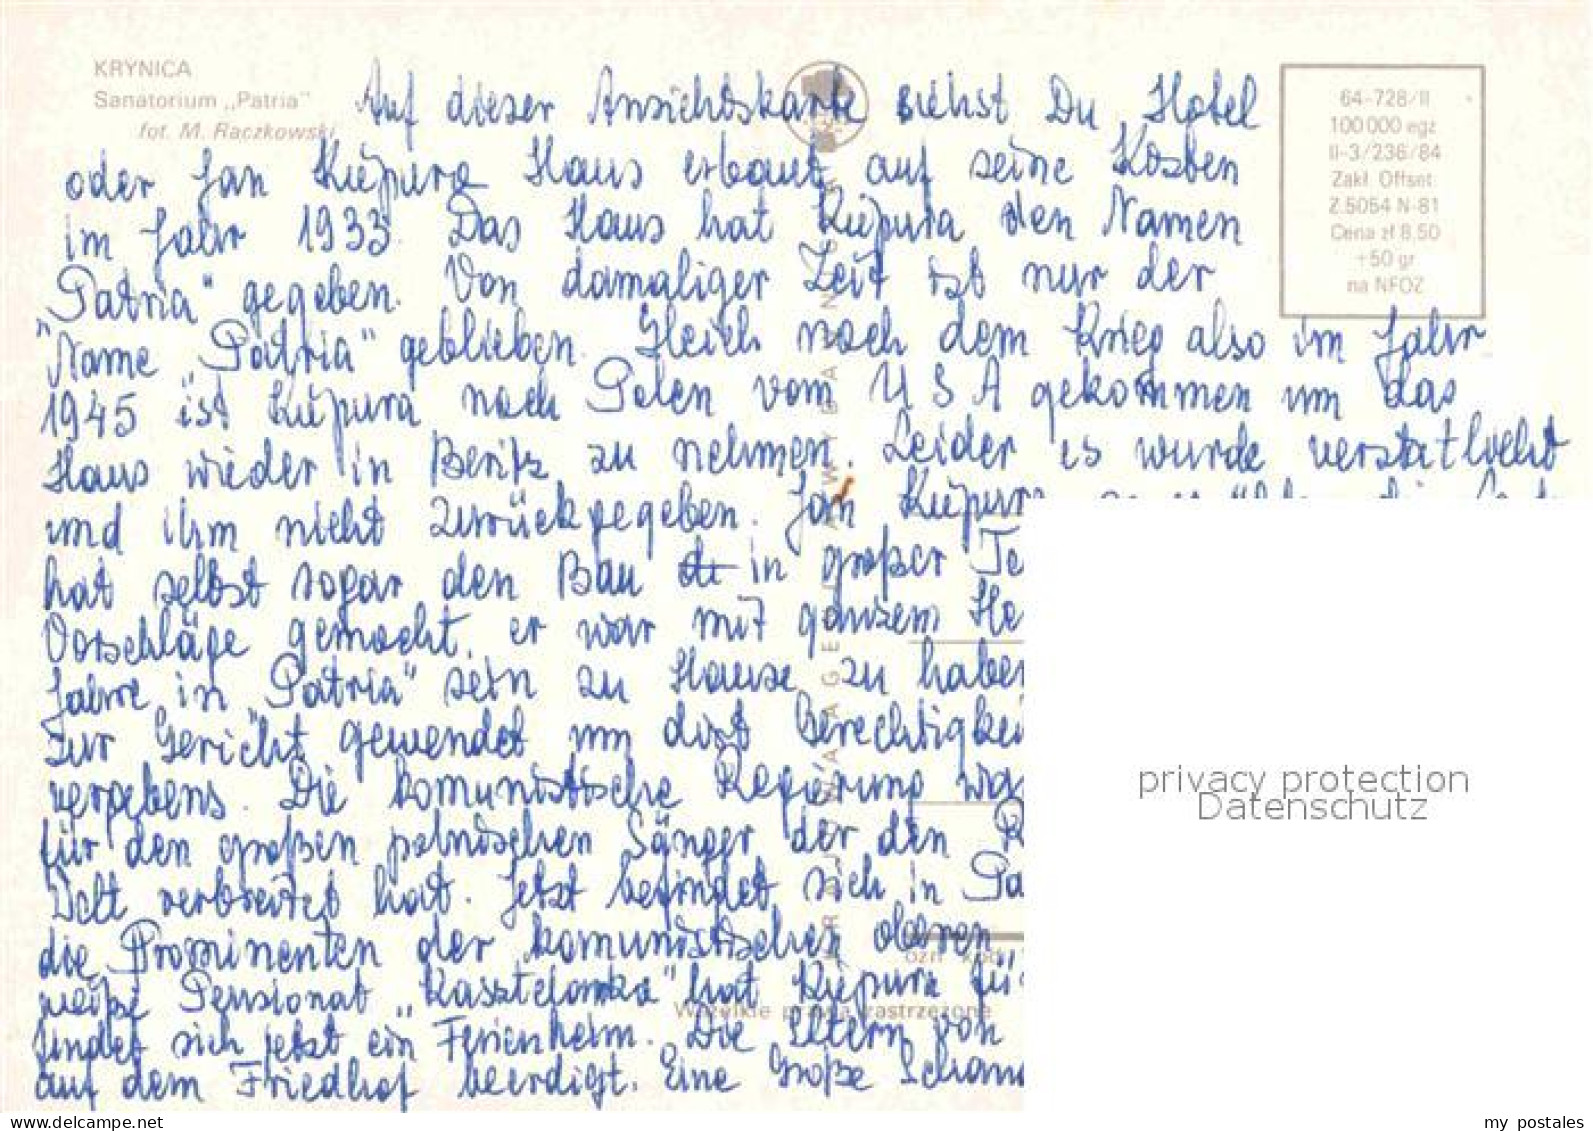 KRYNICA
Sanatorium „Patria"
fot. M. Raczkowski
64-728/II
100 000 egz
II-3/236/84
Zakł. Offset.
Z.5054 N-81
Cena zł 8,50
+50 gr
na NFOZ
Auf dieser Ansichtskarte siehst Du Hotel
oder Jan Kiepura Haus erbaut auf seine Kosten
im Jahr 1933. Das Haus hat Kiepura den Namen
"Patria" gegeben. Von damaliger Zeit ist nur der
Name „Patria" geblieben. Gleich nach dem Krieg also im Jahr
1945 ist Kiepura nach Polen vom USA gekommen um das
Haus wieder in Besitz zu nehmen. Leider es wurde verstatlicht
und ihm nicht zurückgegeben. Jan Kiepura
hat selbst sogar den Bau in großer Te
Vorschläge gemacht, er war mit ganzem He
Jahre in „Patria" sein zu Hause zu haben
zur Gericht gewendet um dirt Berechtigkei
vergebens. Die komunistische Regierung wa
für den großen polnischen Sänger der den R
Welt verbreitet hat. Jetzt befindet sich in Pa
die Prominenten der komunistischen oberen
weiße Pensionat „Kasztelanka" hat Kiepura fü
findet sich jetzt ein Ferienheim. Die Eltern von
auf dem Friedhof beerdigt. Eine Große Schan
Wszelkie prawa zastrzeżone
privacy protection
Datenschutz
www.delcampe.net
my_postales